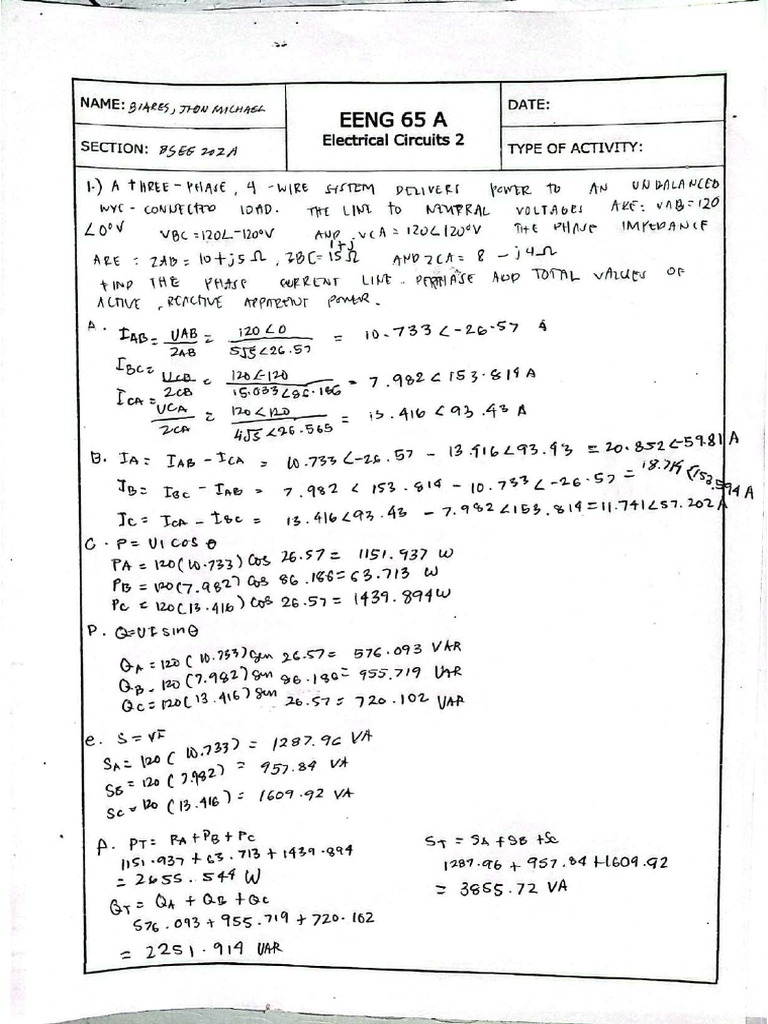 NAME: BIARES, JHON MICHAEL
SECTION: BSEE 202A
EENG 65 A
Electrical Circuits 2
DATE:
TYPE OF ACTIVITY:
1.) A THREE-PHASE, 4-WIRE SYSTEM DELIVERS POWER TO AN UNBALANCED
WYE-CONNECTED LOAD. THE LINE TO NEUTRAL VOLTAGES ARE: VAB=120
∠0°V VBC=120∠-120°V AND VCA=120∠120°V THE PHASE IMPEDANCE
ARE: ZAB=10+j5Ω, ZBC=1+j15Ω AND ZCA=8-j4Ω
FIND THE PHASE CURRENT LINE. PERPHASE AND TOTAL VALUES OF
ACTIVE, REACTIVE APPARENT POWER.
A. IAB= VAB/ZAB = 120∠0/5√5∠26.57 = 10.733∠-26.57 A
IBC= VCB/ZCB = 120∠-120/15.033∠86.186 = 7.982∠153.814 A
ICA= VCA/ZCA = 120∠120/4√5∠26.565 = 13.416∠93.43 A
B. IA= IAB-ICA = 10.733∠-26.57 - 13.416∠93.43 = 20.852∠-59.81 A
IB= IBC-IAB = 7.982∠153.814 - 10.733∠-26.57 = 18.715∠153.594 A
IC= ICA-IBC = 13.416∠93.43 - 7.982∠153.814 = 11.741∠57.202 A
C. P=VI COS θ
PA = 120(10.733) COS 26.57 = 1151.937 W
PB = 120(7.982) COS 86.186 = 63.713 W
PC = 120(13.416) COS 26.57 = 1439.894 W
D. Q=VI sin θ
QA = 120(10.733) sen 26.57 = 576.093 VAR
QB = 120(7.982) sen 86.186 = 955.719 VAR
QC = 120(13.416) sen 26.57 = 720.102 VAR
e. S=VI
SA = 120(10.733) = 1287.96 VA
SB = 120(7.982) = 957.84 VA
SC = 120(13.416) = 1609.92 VA
f. PT = PA+PB+PC
1151.937+63.713+1439.894
= 2655.544 W
QT = QA+QB+QC
576.093+955.719+720.102
= 2251.914 VAR
ST = SA+SB+SC
1287.96+957.84+1609.92
= 3855.72 VA